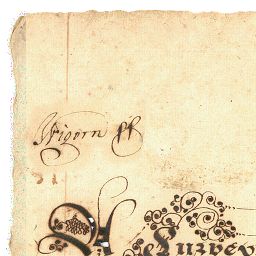 Wigorn ss
A Survey